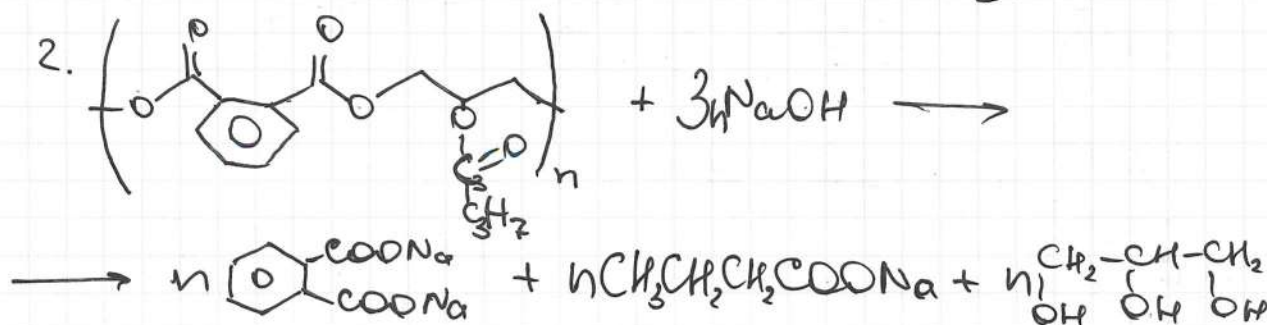 2. ( -O-C(=O)-C₆H₄-C(=O)-O-CH₂-CH(O-C(=O)-C₃H₇)-CH₂- )n + 3nNaOH ⟶
⟶ n COONa COONa + nCH₃CH₂CH₂COONa + n CH₂-CH-CH₂ OH OH OH